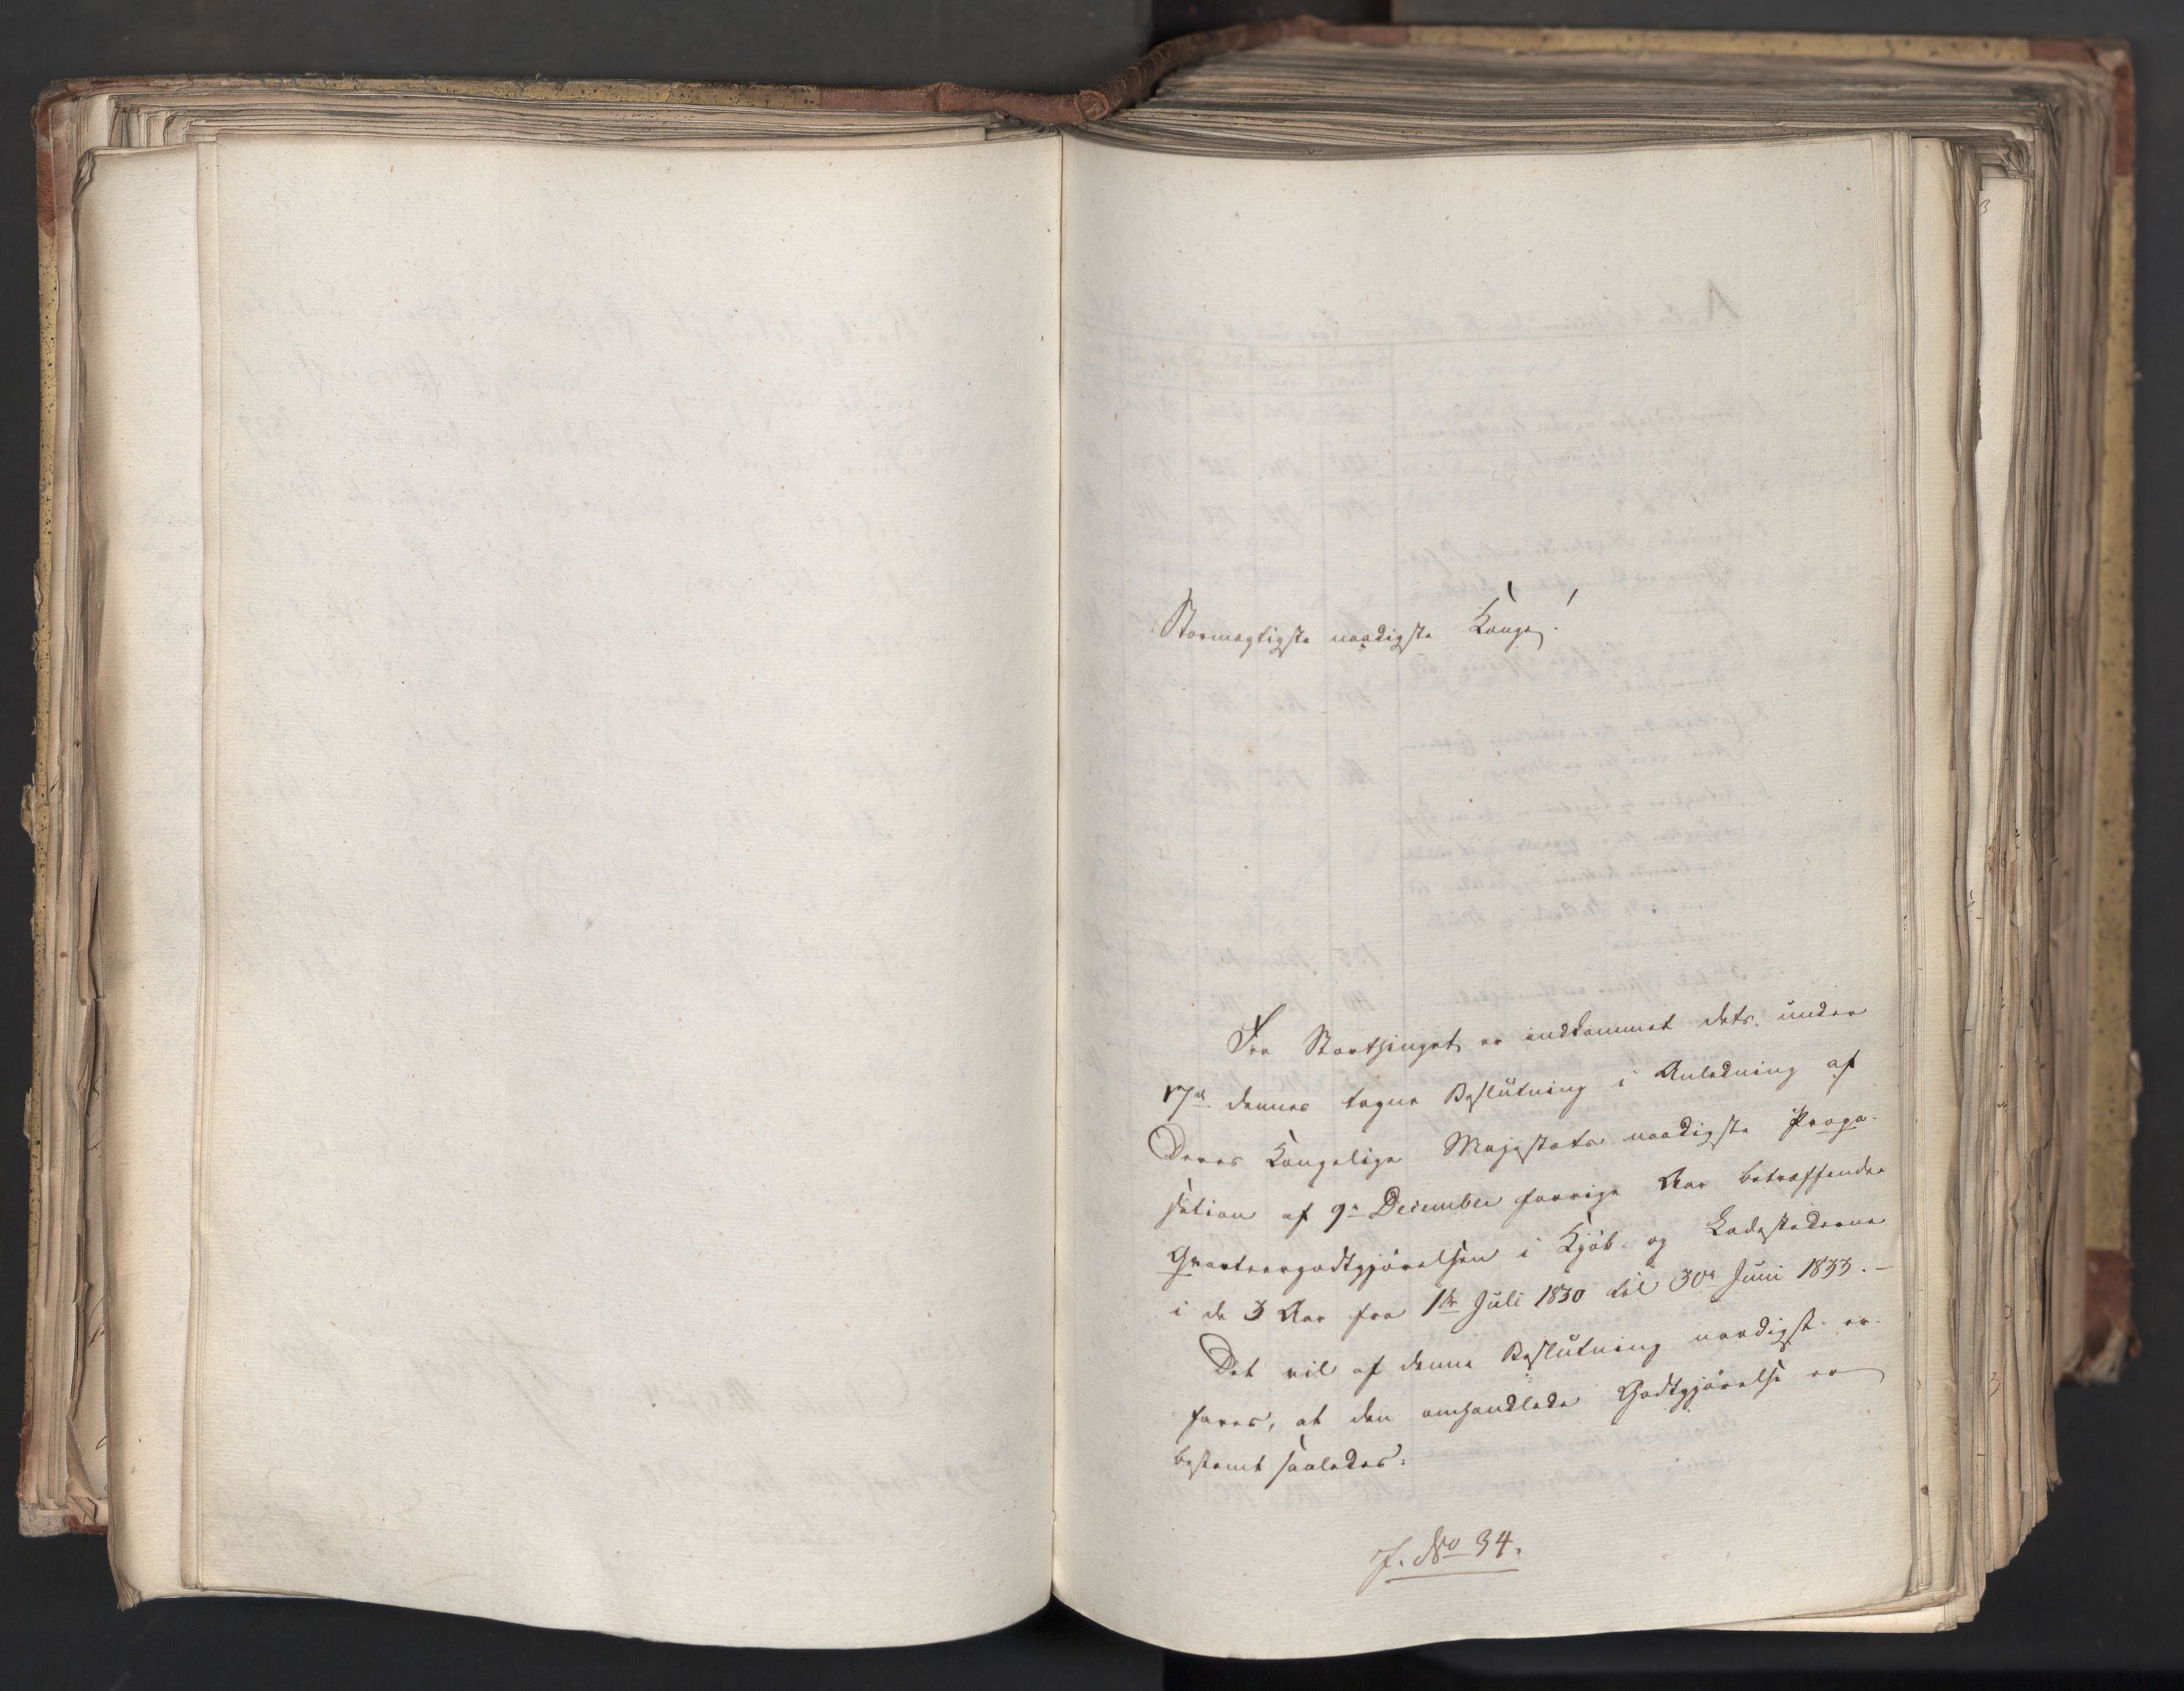 Stormægtigste naadigste Konge!
Fra Storthinget er indkommet dets under
17de dennes tagne Beslutning i Anledning af
Deres Kongelige Majestæts naadigste Propo-
sition af 9de December forrige Aar betræffende
Qvarteergodtgjørelsen i Kjøb- og Ladestæderne
i de 3 Aar fra 1ste Juli 1830 til 30te Juni 1833. –
Det vil af denne Beslutning naadigst er-
fares, at den omhandlede Godtgjørelse er
bestemt saaledes:
J. No 34.